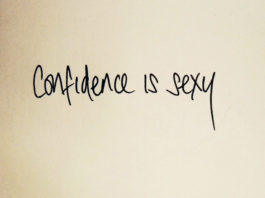 Confidence is sexy